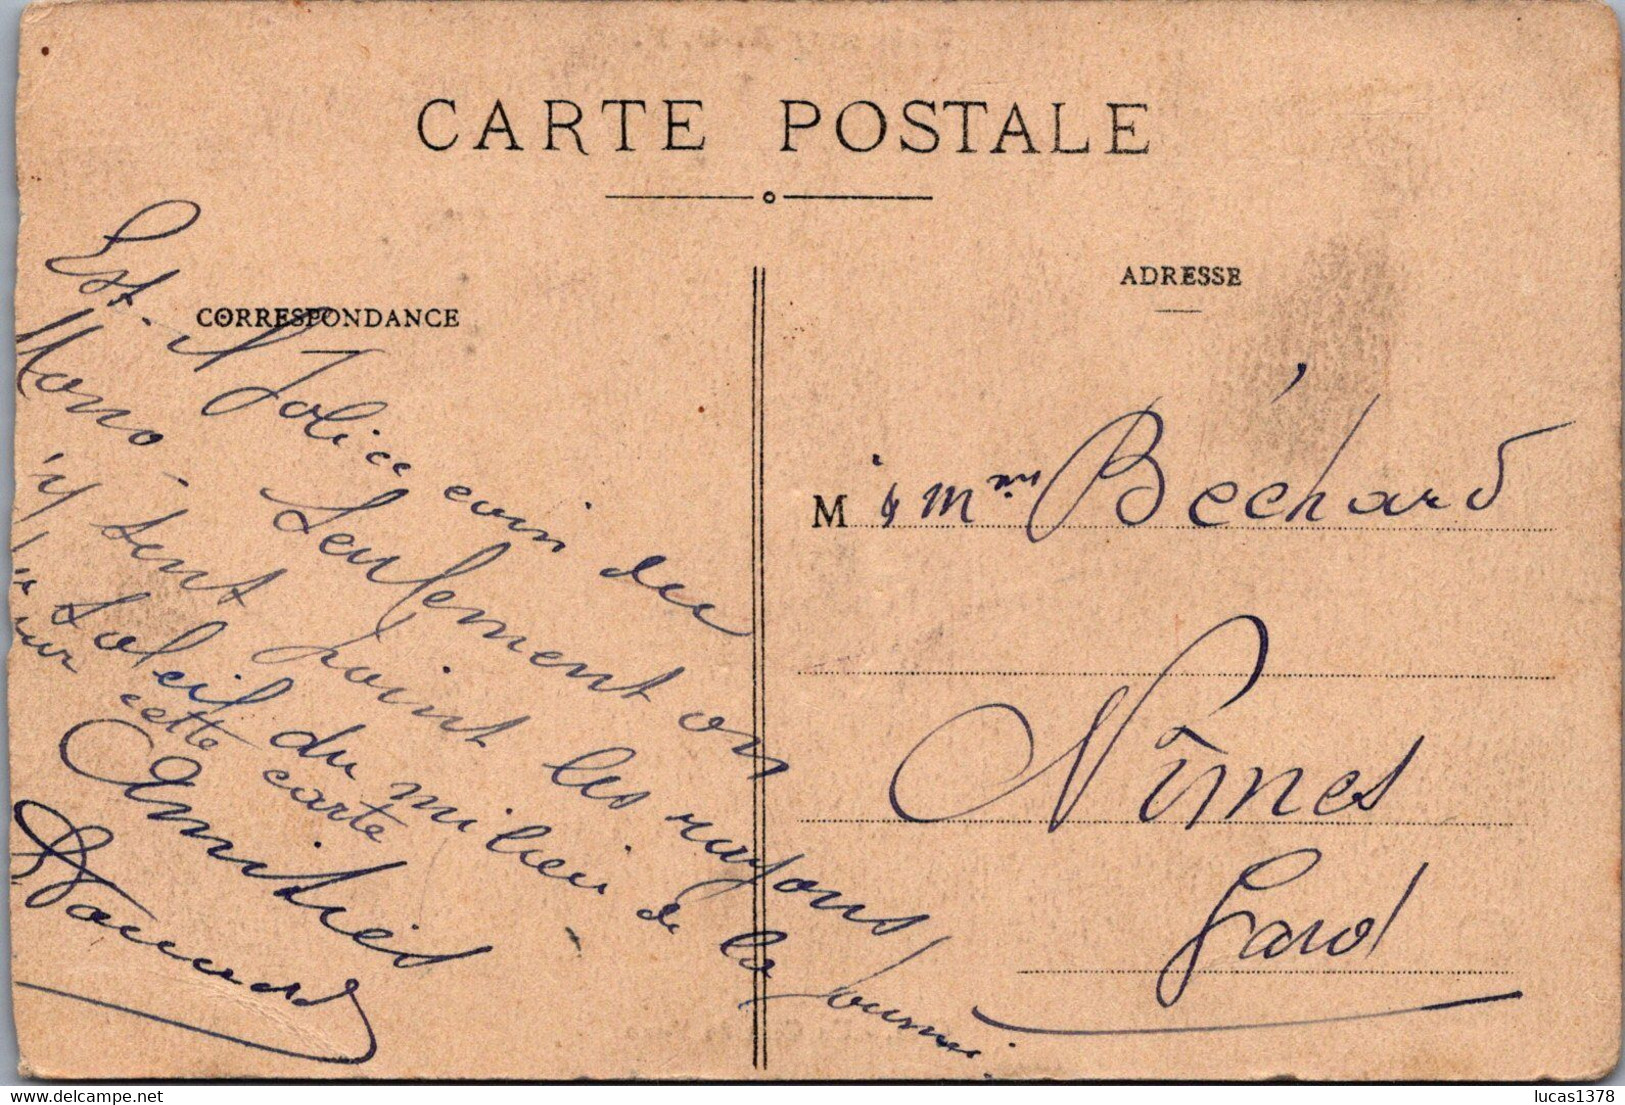 CARTE POSTALE
CORRESPONDANCE
Est-il Joli ce coin du
Mono. Seulement on
y sent point les rayons
du Soleil du milieu de la journée
sur cette carte
Amitiés
ADRESSE
M r & Mme Béchard
Nîmes
Gard
delcampe.net
lucas1378